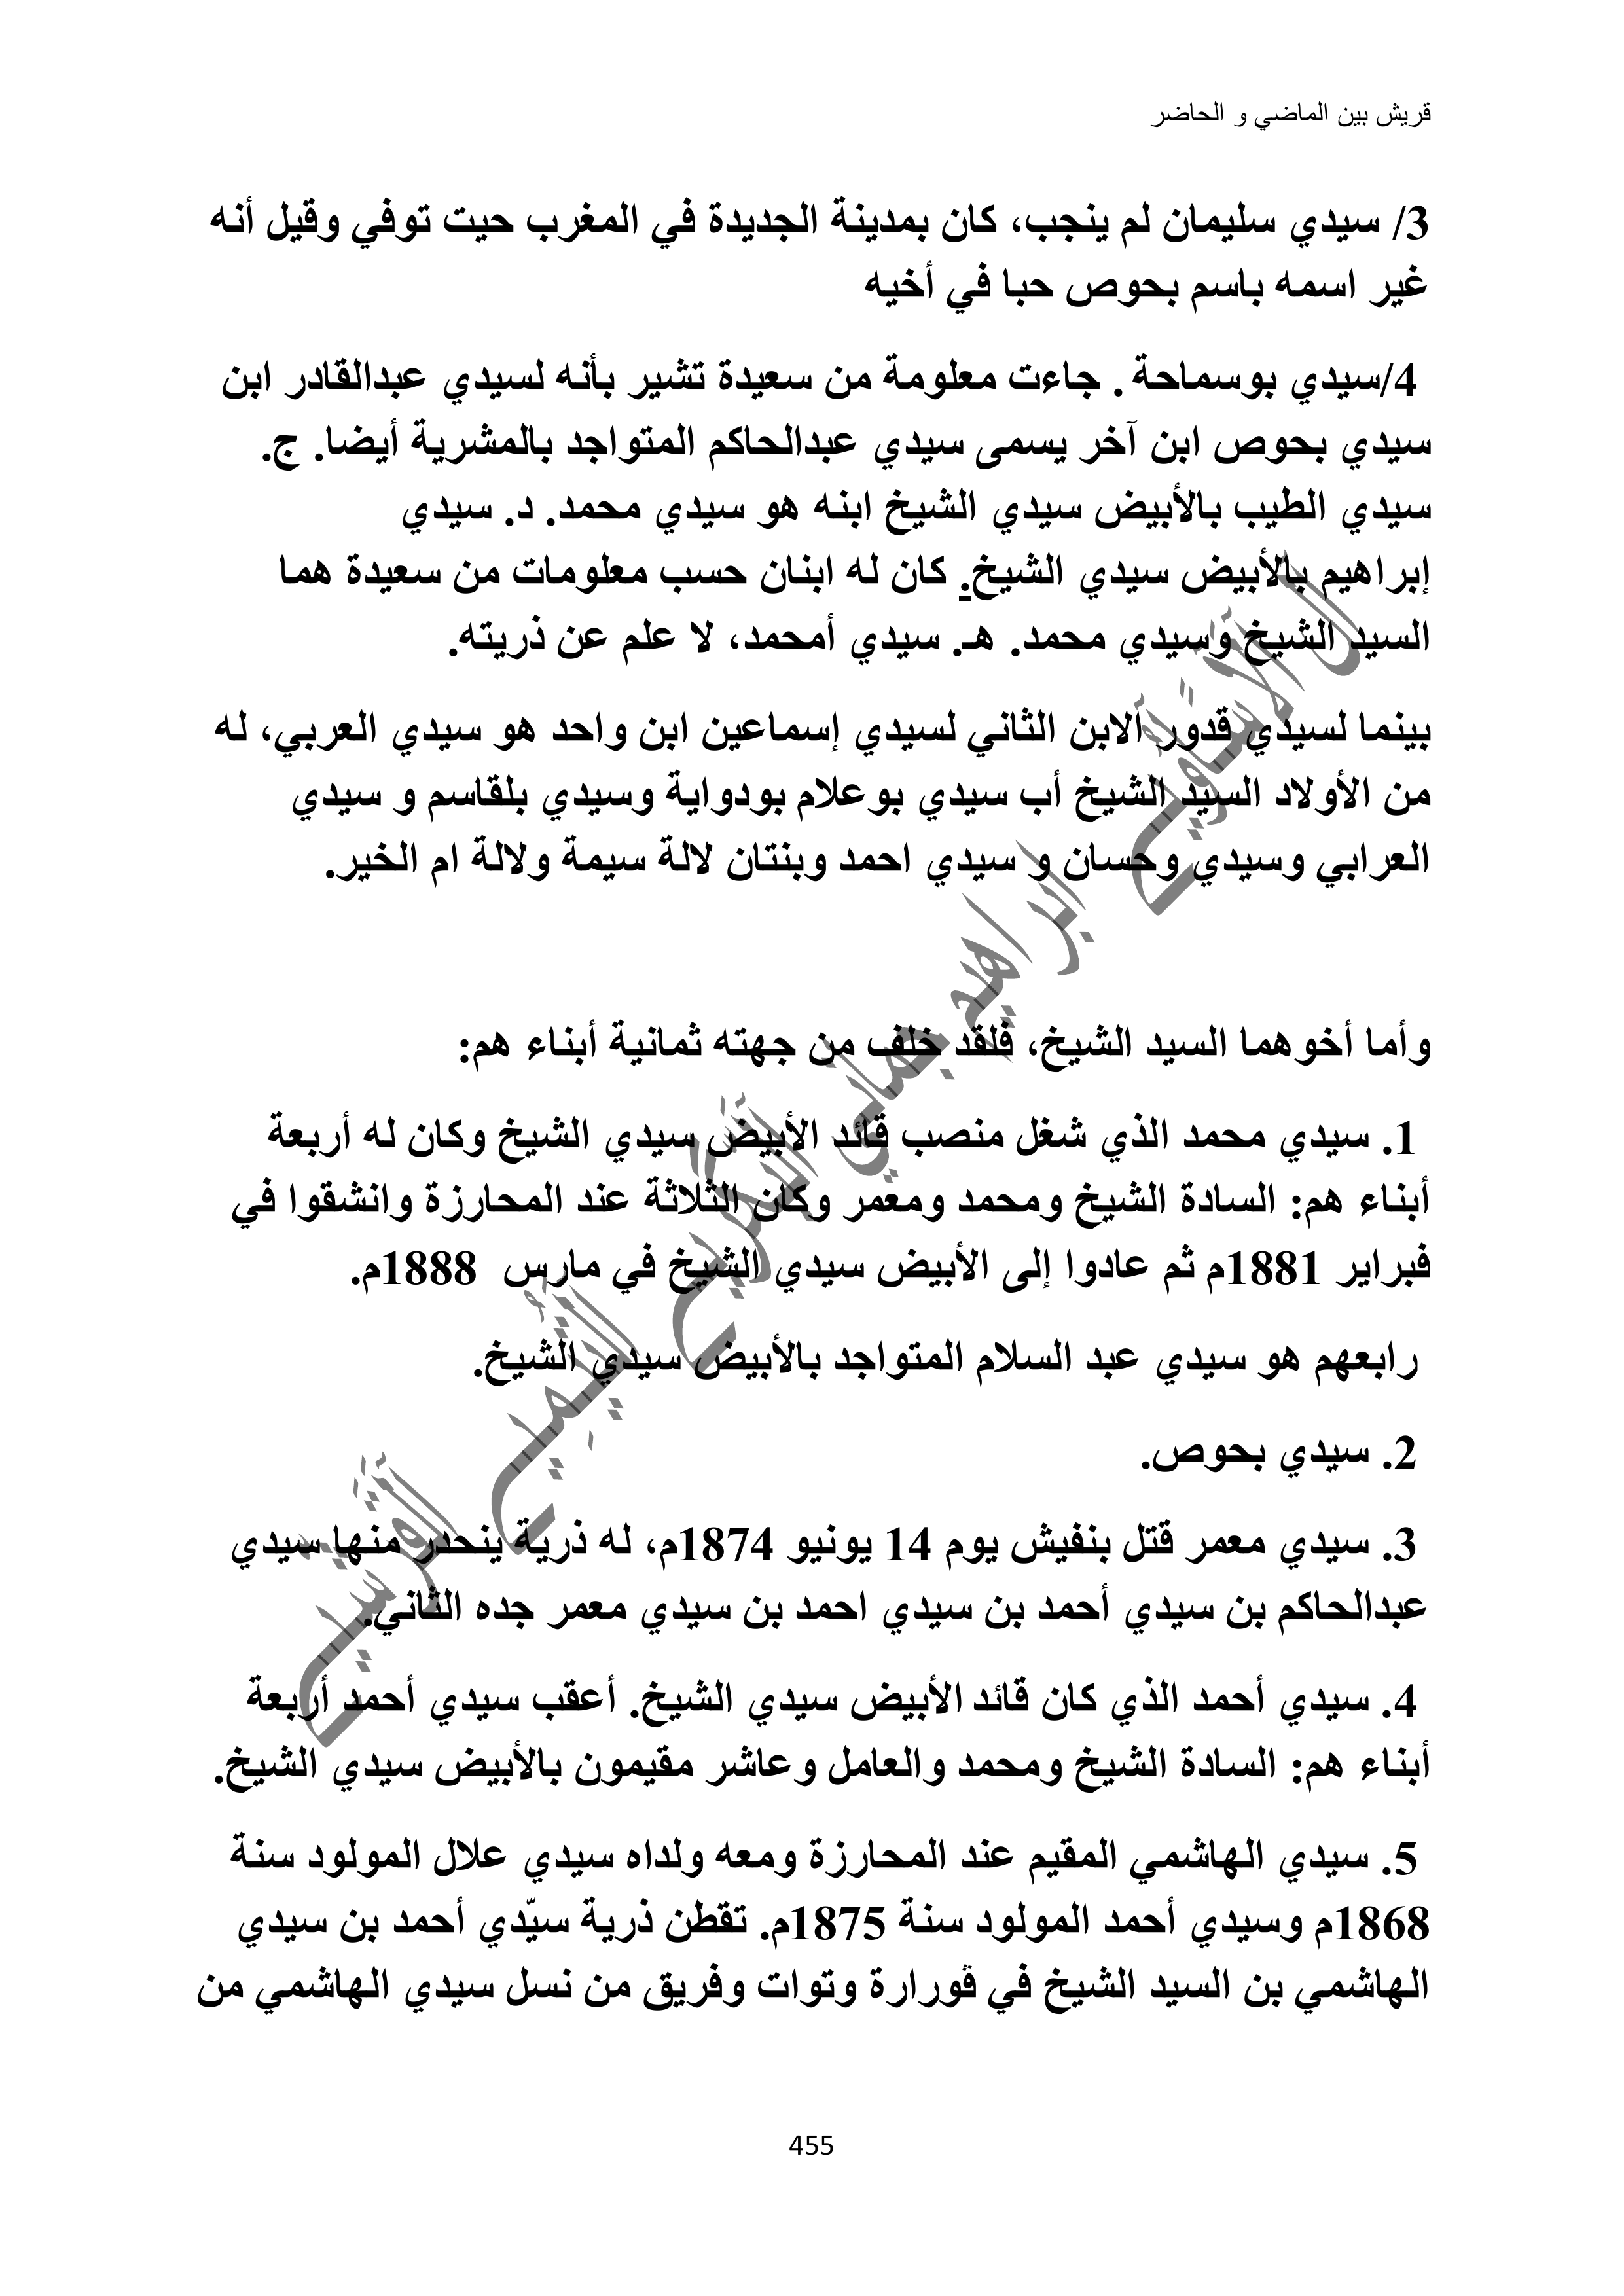 قريش بين الماضي و الحاضر
3/ سيدي سليمان لم ينجب، كان بمدينة الجديدة في المغرب حيت توفي وقيل أنه
غير اسمه باسم بحوص حبا في أخيه
4/سيدي بوسماحة . جاءت معلومة من سعيدة تشير بأنه لسيدي عبدالقادر ابن
سيدي بحوص ابن آخر يسمى سيدي عبدالحاكم المتواجد بالمشرية أيضا. ج.
سيدي الطيب بالأبيض سيدي الشيخ ابنه هو سيدي محمد. د. سيدي
إبراهيم بالأبيض سيدي الشيخ. كان له ابنان حسب معلومات من سعيدة هما
السيد الشيخ وسيدي محمد. هـ. سيدي أمحمد، لا علم عن ذريته.
بينما لسيدي قدور الابن الثاني لسيدي إسماعين ابن واحد هو سيدي العربي، له
من الأولاد السيد الشيخ أب سيدي بوعلام بودواية وسيدي بلقاسم و سيدي
العرابي وسيدي وحسان و سيدي احمد وبنتان لالة سيمة ولالة ام الخير.
وأما أخوهما السيد الشيخ، فلقد خلف من جهته ثمانية أبناء هم:
1. سيدي محمد الذي شغل منصب قائد الأبيض سيدي الشيخ وكان له أربعة
أبناء هم: السادة الشيخ ومحمد ومعمر وكان الثلاثة عند المحارزة وانشقوا في
فبراير 1881م ثم عادوا إلى الأبيض سيدي الشيخ في مارس 1888م.
رابعهم هو سيدي عبد السلام المتواجد بالأبيض سيدي الشيخ.
2. سيدي بحوص.
3. سيدي معمر قتل بنفيش يوم 14 يونيو 1874م، له ذرية ينحدر منها سيدي
عبدالحاكم بن سيدي أحمد بن سيدي احمد بن سيدي معمر جده الثاني.
4. سيدي أحمد الذي كان قائد الأبيض سيدي الشيخ. أعقب سيدي أحمد أربعة
أبناء هم: السادة الشيخ ومحمد والعامل وعاشر مقيمون بالأبيض سيدي الشيخ.
5. سيدي الهاشمي المقيم عند المحارزة ومعه ولداه سيدي علال المولود سنة
1868م وسيدي أحمد المولود سنة 1875م. تقطن ذرية سيّدي أحمد بن سيدي
الهاشمي بن السيد الشيخ في ڨورارة وتوات وفريق من نسل سيدي الهاشمي من
455